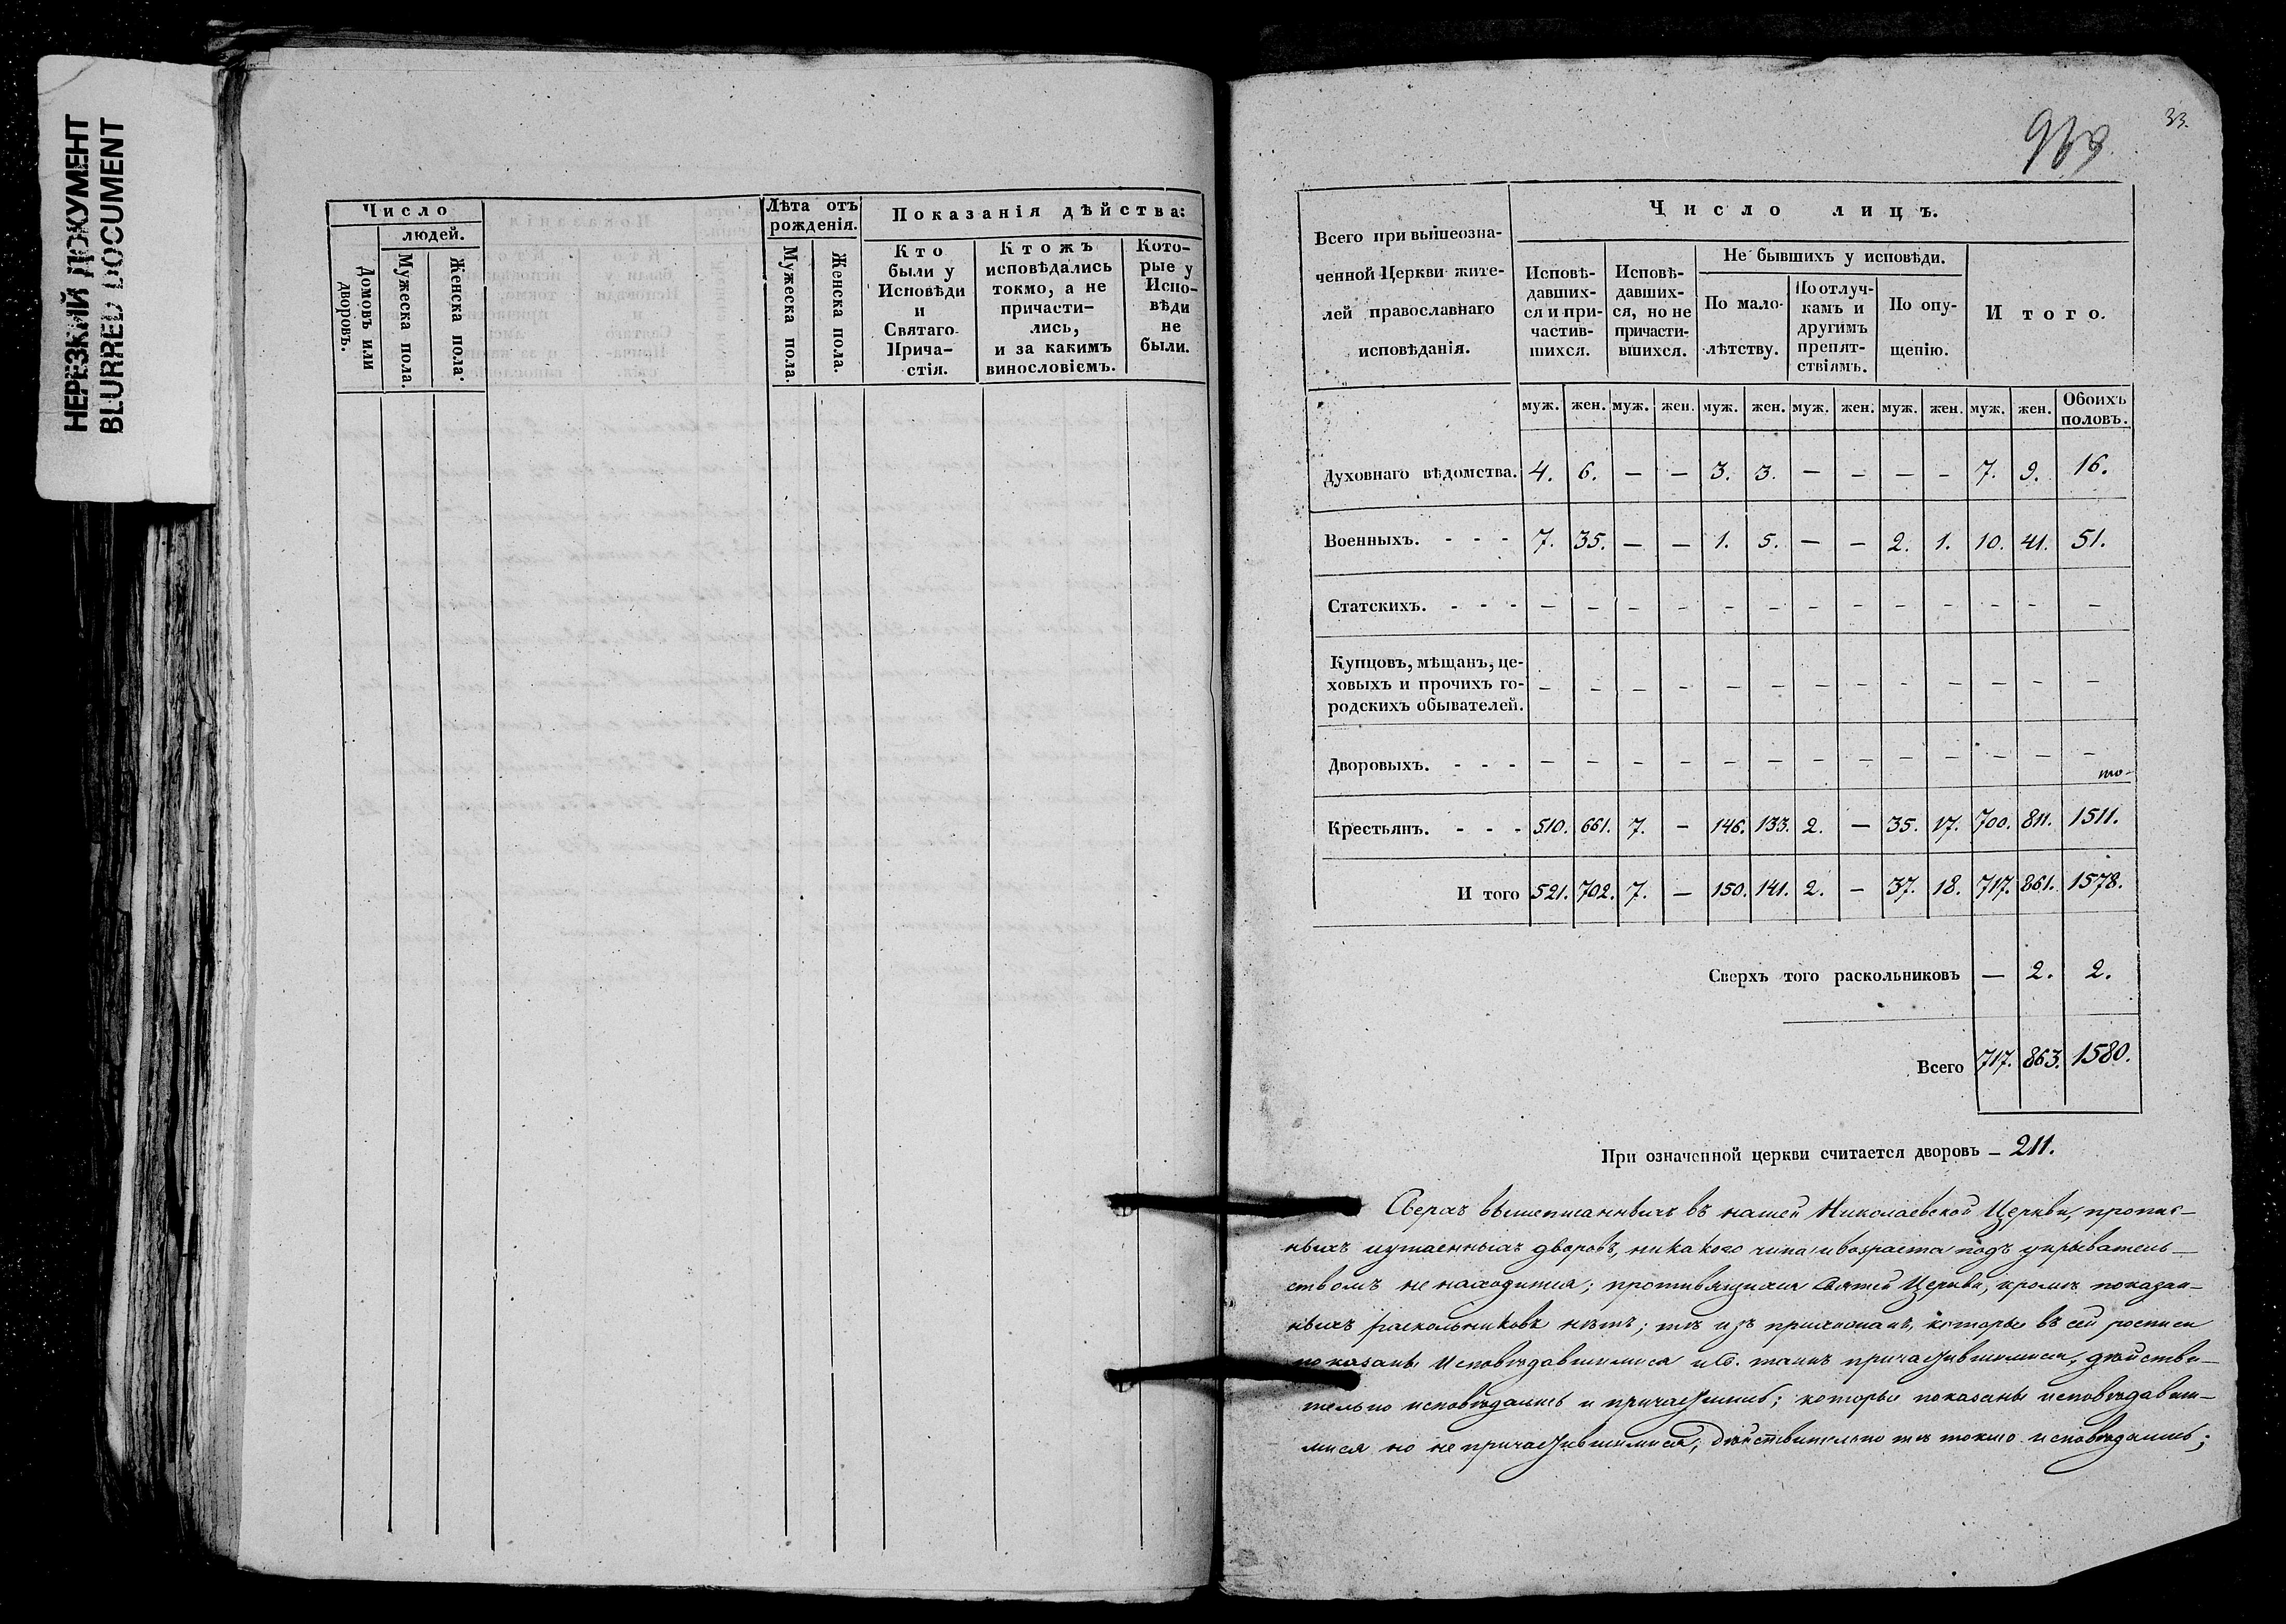 НЕРЕЗКИЙ ДОКУМЕНТ
BLURRED DOCUMENT
Число
людей.
Домовъ или дворовъ.
Мужеска пола.
Женска пола.
Лѣта отъ
рожденія.
Мужеска пола.
Женска пола.
Показанія дѣйства:
Кто
были у
Исповѣди
и
Святаго
Прича-
стія.
Ктожъ
исповѣдались
токмо, а не
причасти-
лись,
и за какимъ
винословіемъ.
Кото-
рые у
Испо-
вѣди
не
были.
33.
Всего при вышеозна-
ченной Церкви жите-
лей православнаго
исповѣданія.
Число лицъ.
Исповѣ-
давших-
ся и при-
частив-
шихся.
Исповѣ-
давших-
ся, но не
причасти-
вшихся.
Не бывшихъ у исповѣди.
По мало-
лѣтству.
По отлуч-
камъ и
другимъ
препят-
ствіямъ.
По опу-
щенію.
И того.
муж. жен. муж. жен. муж. жен. муж. жен. муж. жен. муж. жен. Обоихъ
половъ.
Духовнаго вѣдомства. 4. 6. — — 3. 3. — — — — 7. 9. 16.
Военныхъ. - - - 7. 35. — — 1. 5. — — 2. 1. 10. 41. 51.
Статскихъ. - - - — — — — — — — — — — — — —
Купцовъ, мѣщанъ, це-
ховыхъ и прочихъ го- — — — — — — — — — — — — —
родскихъ обывателей.
Дворовыхъ. - - - — — — — — — — — — — — — —
то-
Крестьянъ. - - - 510. 661. 7. — 146. 133. 2. — 35. 17. 700. 811. 1511.
И того 521. 702. 7. — 150. 141. 2. — 37. 18. 717. 861. 1578.
Сверхъ того раскольниковъ — 2. 2.
Всего 717. 863. 1580.
При означенной церкви считается дворовъ — 211.
Сверхъ вышеписанныхъ въ нашей Николаевской Церкви, пропис-
ныхъ и утаенныхъ дворовъ, никакого чина и возраста подъ укрыватель-
ствомъ не находится; противящихся Святей Церкви, кромѣ показан-
ныхъ раскольниковъ нѣтъ; тѣ изъ прихожанъ, которые въ сей росписи
показаны исповѣдавшимися и С. таинъ причастившимися, дѣйстви-
тельно исповѣдались и причастились; которые показаны исповѣдавши-
мися но не причастившимися, дѣйствительно тѣ токмо исповѣдались;